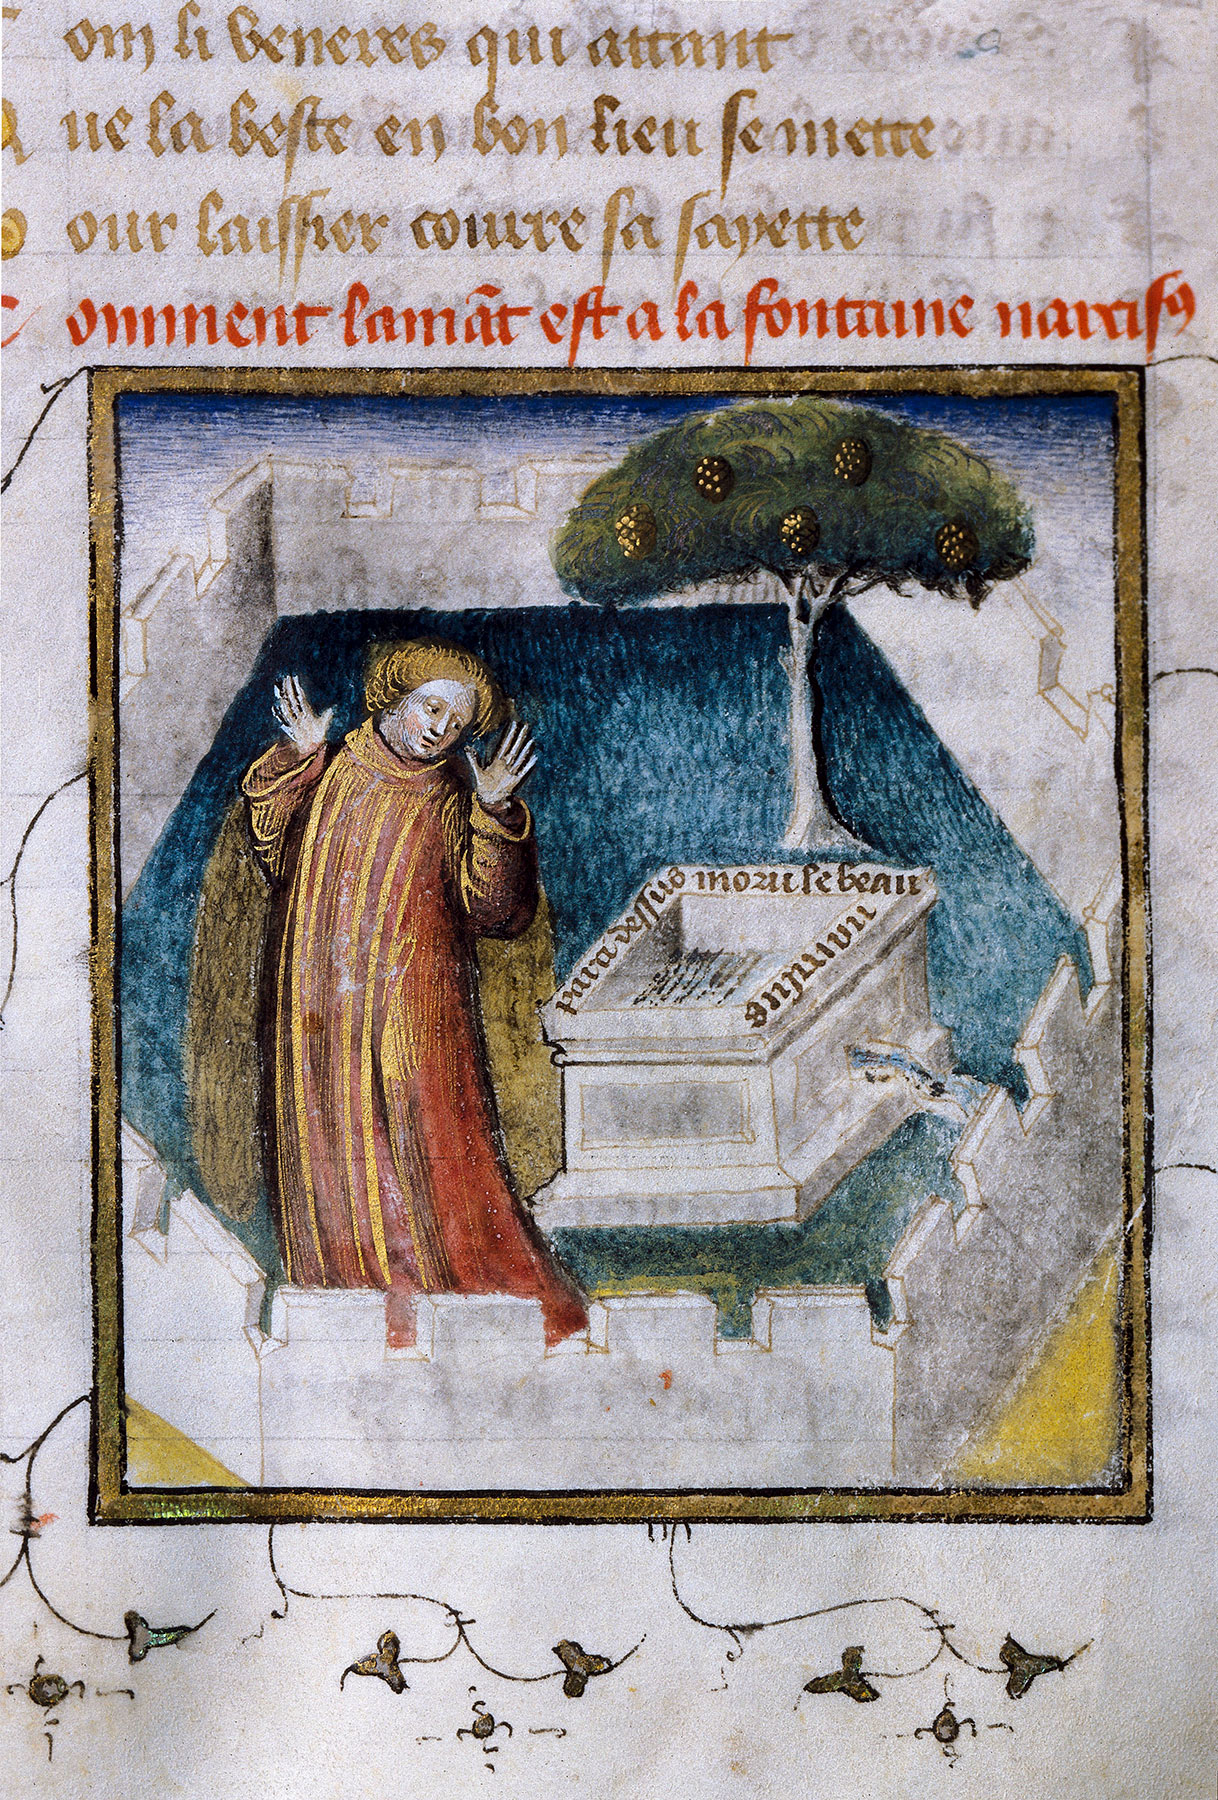 Com li veneres qui attant
Que la beste en bon lieu se mette
Pour laissier courre sa sayette
Comment lamāt est a la fontaine narcisꝰ
par a dessus moru le beau narcisus